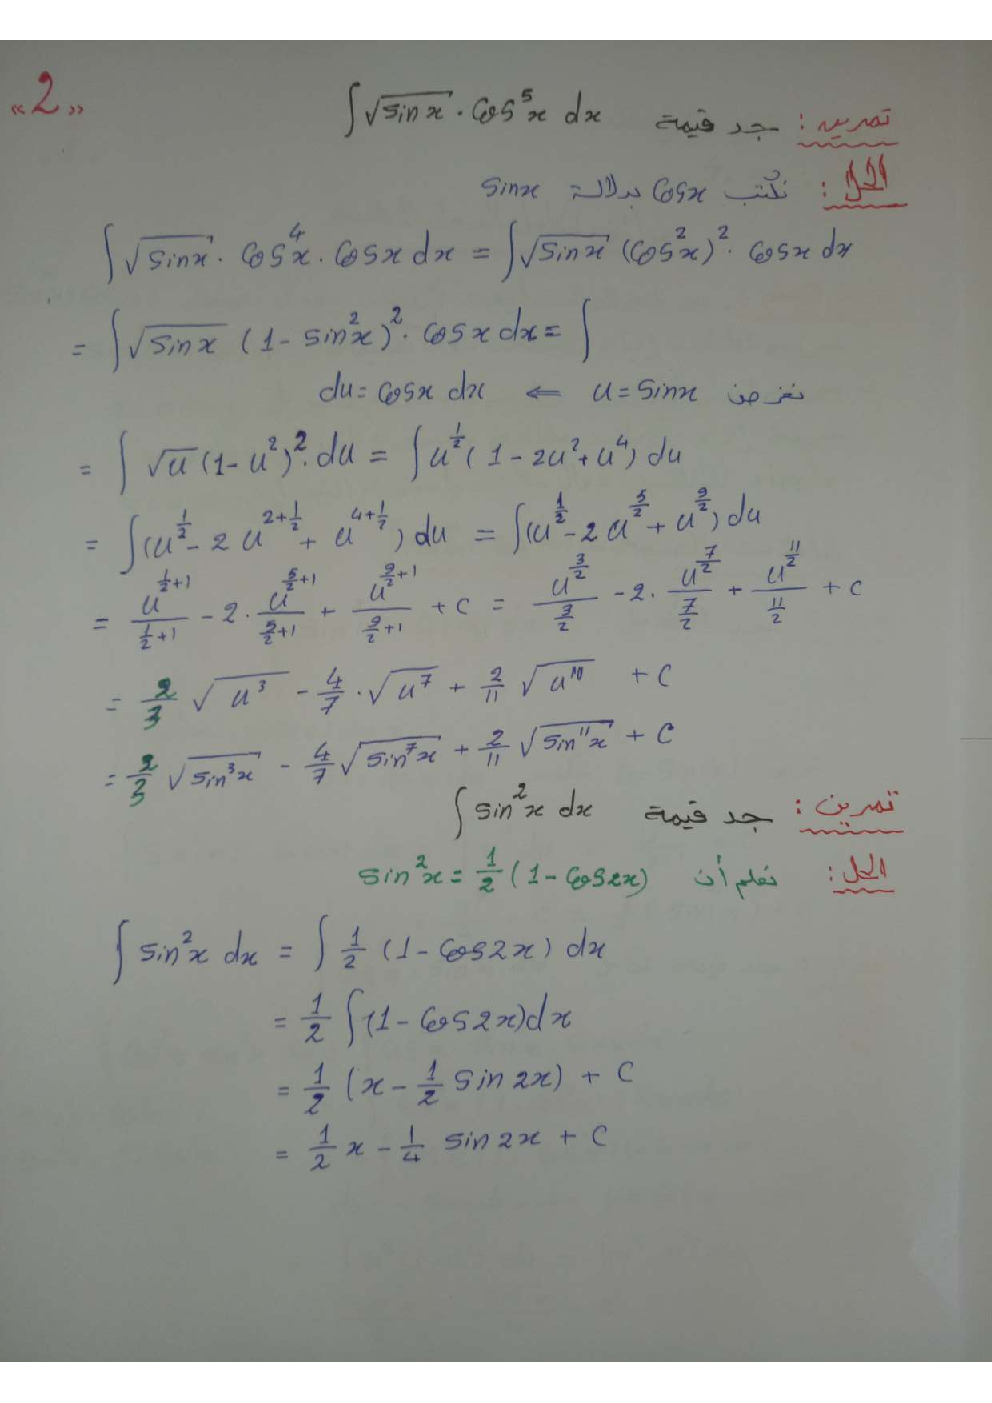 «2»
تمرين: جد قيمة ∫√(sinx) · cos⁵x dx
الحل: نكتب cosx بدلالة sinx
∫√(sinx) · cos⁴x · cosx dx = ∫√(sinx) (cos²x)² · cosx dx
= ∫√(sinx) (1 - sin²x)² · cosx dx = ∫
نفرض u = sinx ⇐ du = cosx dx
= ∫ √u (1 - u²)² · du = ∫ u^(1/2) (1 - 2u² + u⁴) du
= ∫(u^(1/2) - 2 u^(2+1/2) + u^(4+1/2)) du = ∫(u^(1/2) - 2 u^(5/2) + u^(9/2)) du
= u^(1/2+1)/(1/2+1) - 2 · u^(5/2+1)/(5/2+1) + u^(9/2+1)/(9/2+1) + c = u^(3/2)/(3/2) - 2 · u^(7/2)/(7/2) + u^(11/2)/(11/2) + c
= 2/3 √(u³) - 4/7 · √(u⁷) + 2/11 √(u¹¹) + c
= 2/3 √(sin³x) - 4/7 √(sin⁷x) + 2/11 √(sin¹¹x) + c
تمرين: جد قيمة ∫ sin²x dx
الحل: نعلم أن sin²x = 1/2 (1 - cos2x)
∫ sin²x dx = ∫ 1/2 (1 - cos2x) dx
= 1/2 ∫(1 - cos2x)dx
= 1/2 (x - 1/2 sin 2x) + c
= 1/2 x - 1/4 sin 2x + c